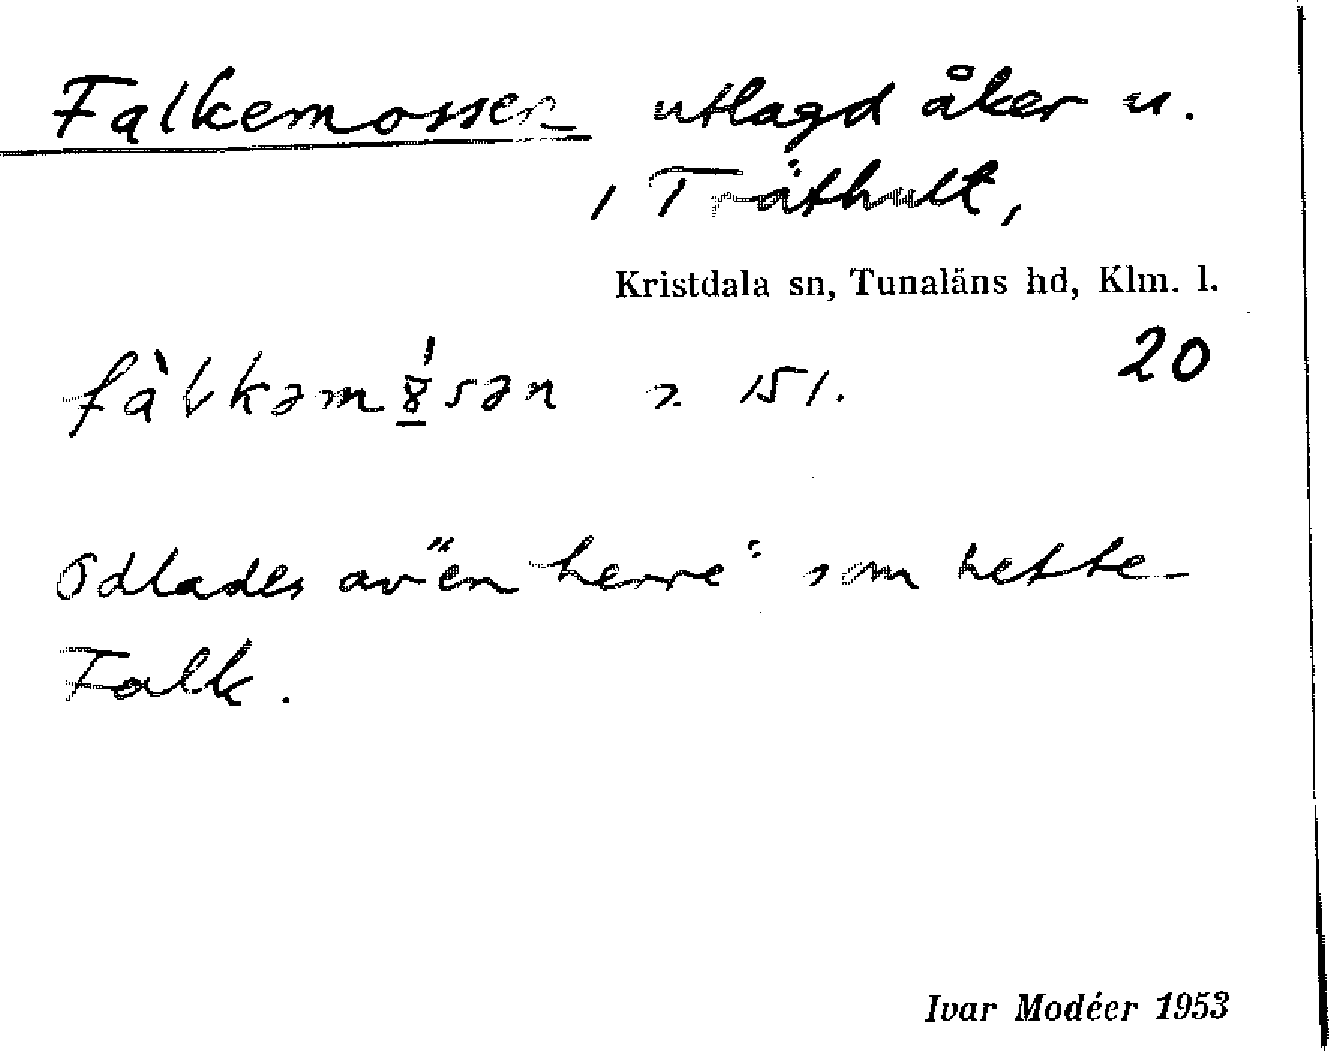 Falkemossen utlagd åker u.
1 Tråthult,
Kristdala sn, Tunaläns hd, Klm. l.
20
151.
Odlades av "en herre" som hette
Falk.
Ivar Modéer 1953